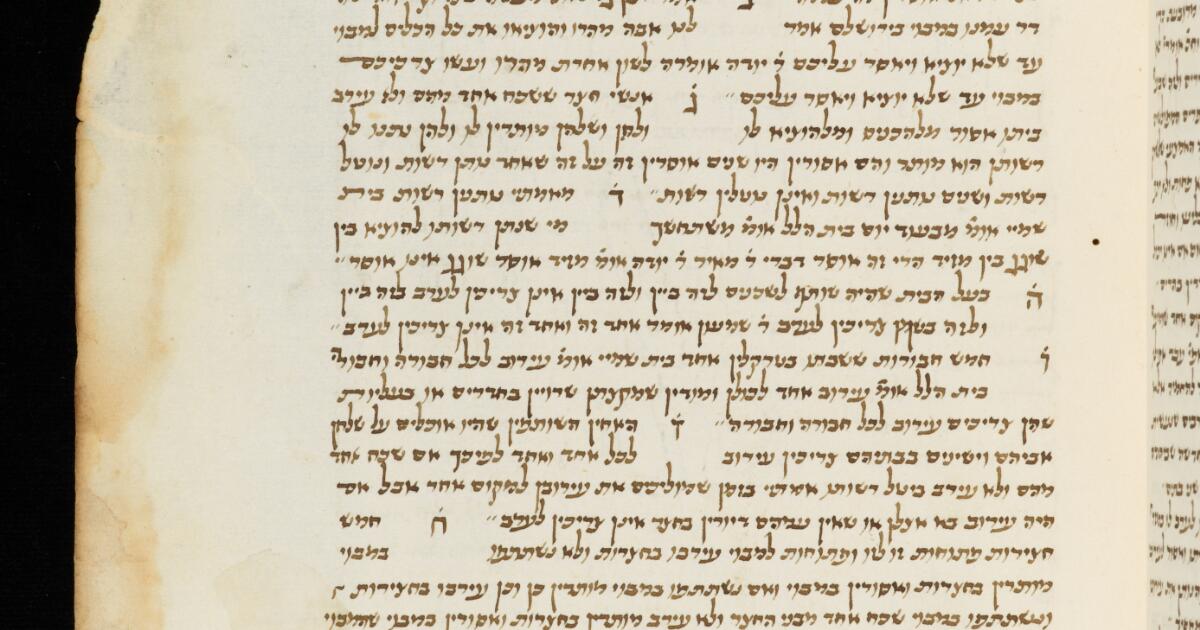 דר עמנו במבוי בירושלם אמר לנו אבה מהרו והוציאו את כל הכלים למבוי
עד שלא יוציא ויאסר עליכם ר׳ יודה אומרה לשון אחרת מהרו ועשו צרכיכם
במבוי עד שלא יוציא ויאסר עליכם ״ ג אנשי חצר ששכח אחד מהם ולא עירב
ביתו אסור מלהכניס ומלהוציא לו ולהן ושלהן מותרין לו ולהן נתנו לו
רשותן הוא מותר והם אסורין היו שנים אוסרין זה על זה שאחד נותן רשות ונוטל
רשות ושנים נותנין רשות ואינן נוטלין רשות ״ ד מאמתי נותנין רשות בית
שמיי אומ׳ מבעוד יום בית הלל אומ׳ משתחשך מי שנתן רשותו להוציא בין
שוגג בין מזיד הרי זה אוסר דברי ר׳ מאיר ר׳ יודה אומ׳ מזיד אוסר שוגג אינו אוסר ״
ה בעל הבית שהיה שותף לשכנים לזה ביין ולזה ביין אינן צריכין לערב לזה ביין
ולזה בשמן צריכין לערב ר׳ שמעון אומר אחד זה ואחד זה אינן צריכין לערב ״
ו חמש חבורות ששבתו בטרקלין אחד בית שמיי אומ׳ עירוב לכל חבורה וחבור׳
בית הלל אומ׳ עירוב אחד לכולן ומודין שמקצתן שרויין בחדרים או בעליות
שהן צריכים עירוב לכל חבורה וחבורה ״ ז האחין השותפין שהיו אוכלים על שלחן
אביהם וישינים בבתיהם צריכין עירוב לכל אחד ואחד לפיכך אם שכח אחד
מהם ולא עירב ביטל רשותו אמתי בזמן שמוליכים את עירובן למקום אחר אבל אם
היה עירוב בא אצלן או שאין עמהם דיורין בחצר אינן צריכין לערב ״ ח חמש
חצירות פתוחות זו לזו ופתוחות למבוי עירבו בחצרות ולא נשתתפו במבוי
מותרין בחצרות ואסורין במבוי ואם נשתתפו במבוי מותרין כן וכן עירבו בחצירות
ונשתתפו במבוי שכח אחד מבני החצר ולא עירב מותרין בחצרות ואסורין במבוי שהמבוי